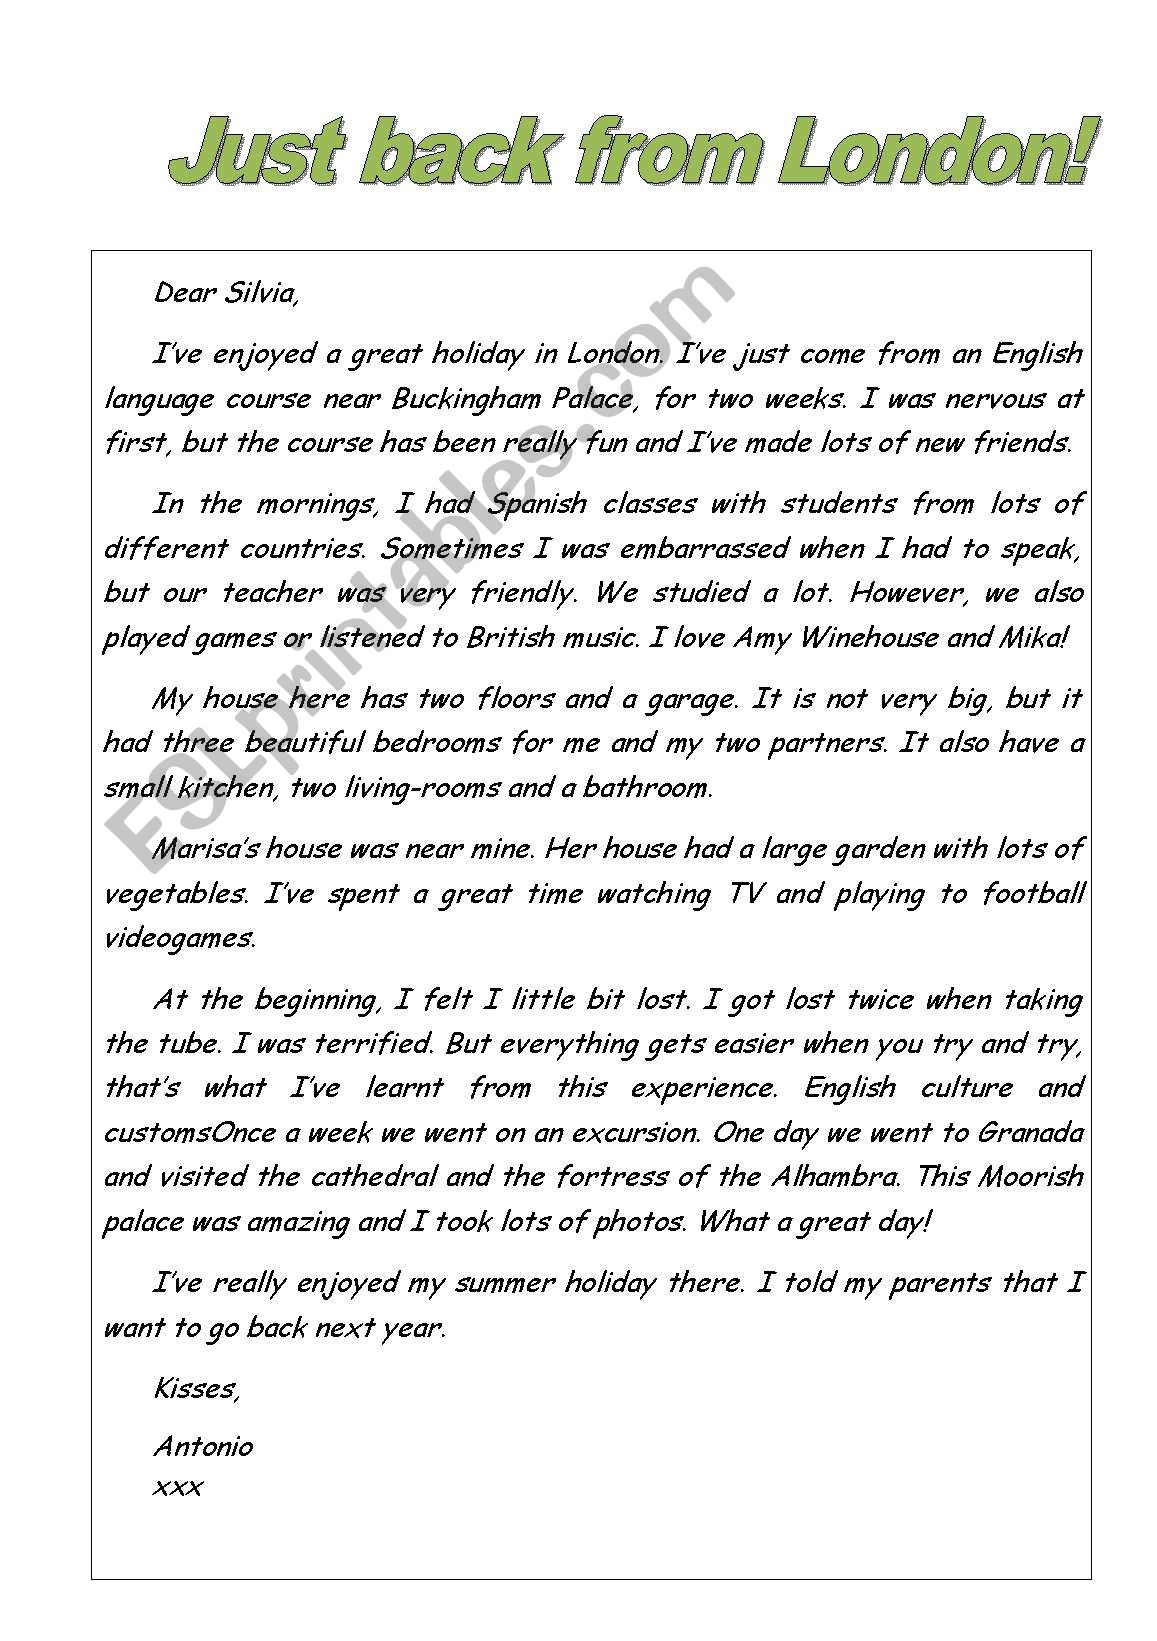 Just back from London!
Dear Silvia,
I've enjoyed a great holiday in London. I've just come from an English
language course near Buckingham Palace, for two weeks. I was nervous at
first, but the course has been really fun and I've made lots of new friends.
In the mornings, I had Spanish classes with students from lots of
different countries. Sometimes I was embarrassed when I had to speak,
but our teacher was very friendly. We studied a lot. However, we also
played games or listened to British music. I love Amy Winehouse and Mika!
My house here has two floors and a garage. It is not very big, but it
had three beautiful bedrooms for me and my two partners. It also have a
small kitchen, two living-rooms and a bathroom.
Marisa's house was near mine. Her house had a large garden with lots of
vegetables. I've spent a great time watching TV and playing to football
videogames.
At the beginning, I felt I little bit lost. I got lost twice when taking
the tube. I was terrified. But everything gets easier when you try and try,
that's what I've learnt from this experience. English culture and
customsOnce a week we went on an excursion. One day we went to Granada
and visited the cathedral and the fortress of the Alhambra. This Moorish
palace was amazing and I took lots of photos. What a great day!
I've really enjoyed my summer holiday there. I told my parents that I
want to go back next year.
Kisses,
Antonio
xxx
ESLprintables.com